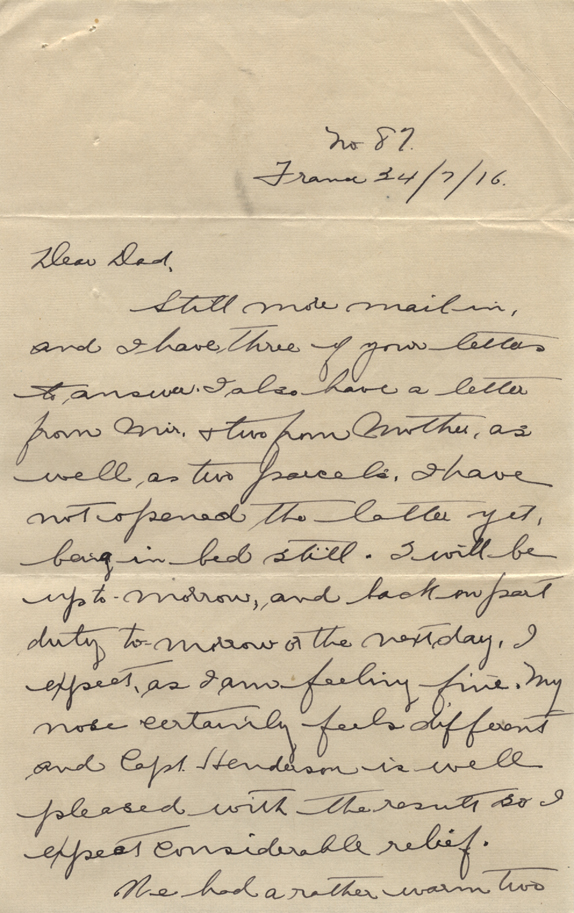 No 87.
France 24/7/16.
Dear Dad,
Still more mail in,
and I have three of your letters
to answer. I also have a letter
from Mir. & two from Mother, as
well as two parcels. I have
not opened the latter yet,
being in bed still. I will be
up to-morrow, and back on part
duty to-morrow or the next day, I
expect, as I am feeling fine. My
nose certainly feels different
and Capt. Henderson is well
pleased with the results so I
expect considerable relief.
We had a rather warm two